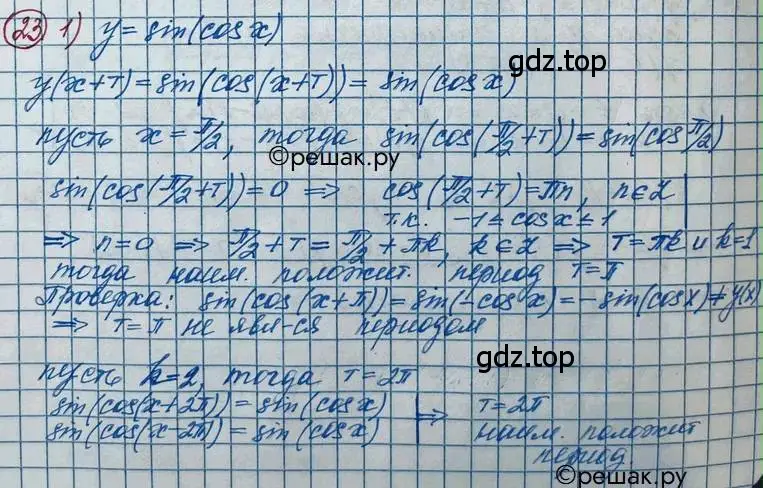 23 1) y = sin(cos x)
gdz.top
y(x+T) = sin(cos(x+T)) = sin(cos x)
пусть x = π/2, тогда sin(cos(π/2+T)) = sin(cos π/2)
©решак.ру
sin(cos(π/2+T)) = 0 ⇒ cos(π/2+T) = πn, n∈Z
т.к. -1 ≤ cos x ≤ 1
⇒ n=0 ⇒ π/2+T = π/2+πk, k∈Z ⇒ T=πk и k=1
тогда наим. положит. период T=π
Проверка: sin(cos(x+π)) = sin(-cos x) = -sin(cos x) ≠ y(x)
⇒ T=π не явл-ся периодом
gdz.top
пусть k=2, тогда T=2π
sin(cos(x+2π)) = sin(cos x)
sin(cos(x-2π)) = sin(cos x)
⇒ T=2π
наим. положит
период.
©решак.ру